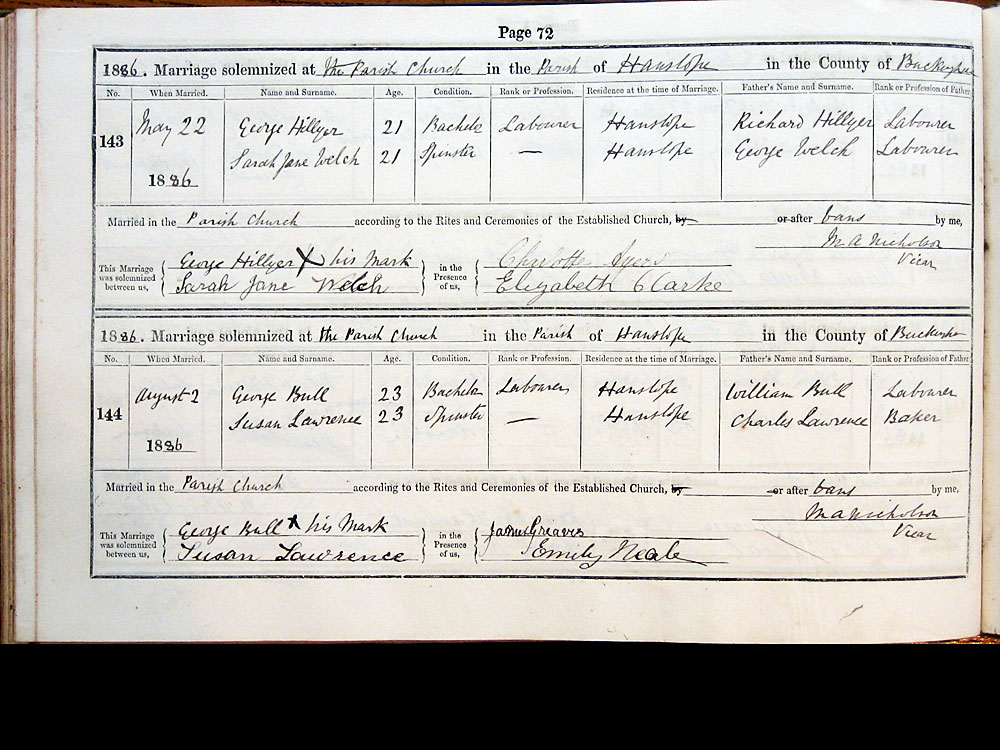 Page 72
1886. Marriage solemnized at the Parish Church in the Parish of Hanslope in the County of
No. When Married. Name and Surname. Age. Condition. Rank or Profession. Residence at the time of Marriage. Father's Name and Surname. Rank or Profession of Father
143 May 22 George Hillyer 21 Bachelor Labourer Hanslope Richard Hillyer Labourer
Sarah Jane Welch 21 Spinster — Hanslope George Welch Labourer
1886
Married in the Parish Church according to the Rites and Ceremonies of the Established Church, by or after bans by me,
M A Nicholson
Vicar
This Marriage was solemnized between us,
George Hillyer X his Mark
Sarah Jane Welch
in the Presence of us,
Charlotte Ayers
Elizabeth Clarke
1886. Marriage solemnized at the Parish Church in the Parish of Hanslope in the County of
No. When Married. Name and Surname. Age. Condition. Rank or Profession. Residence at the time of Marriage. Father's Name and Surname. Rank or Profession of Father
144 August 2 George Bull 23 Bachelor Labourer Hanslope William Bull Labourer
Susan Lawrence 23 Spinster — Hanslope Charles Lawrence Baker
1886
Married in the Parish Church according to the Rites and Ceremonies of the Established Church, by or after bans by me,
M A Nicholson
Vicar
This Marriage was solemnized between us,
George Bull X his Mark
Susan Lawrence
in the Presence of us,
James Greaves
Emily Neale